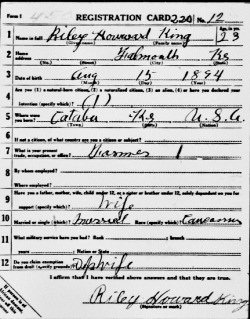 Form 1 REGISTRATION CARD 2201 No. 12
1 Name in full Riley Howard King Age in yrs. 23
(Given name) (Family name)
2 Home address Falmouth Ky
(No.) (Street) (City) (State)
3 Date of birth Aug 15 1894
(Month) (Day) (Year)
4 Are you (1) a natural-born citizen, (2) a naturalized citizen, (3) an alien, (4) or have you declared your intention (specify which)? (1)
5 Where were you born? Catawba Ky U.S.A
(Town) (State) (Nation)
6 If not a citizen, of what country are you a citizen or subject?
7 What is your present trade, occupation, or office? Farmer 1
8 By whom employed?
Where employed?
9 Have you a father, mother, wife, child under 12, or a sister or brother under 12, solely dependent on you for support (specify which)? Wife
10 Married or single (which)? Married Race (specify which)? Caucasian
11 What military service have you had? Rank ; branch
years ; Nation or State
12 Do you claim exemption from draft (specify grounds)? Dp Wife
I affirm that I have verified above answers and that they are true.
Riley Howard King
(Signature or mark)